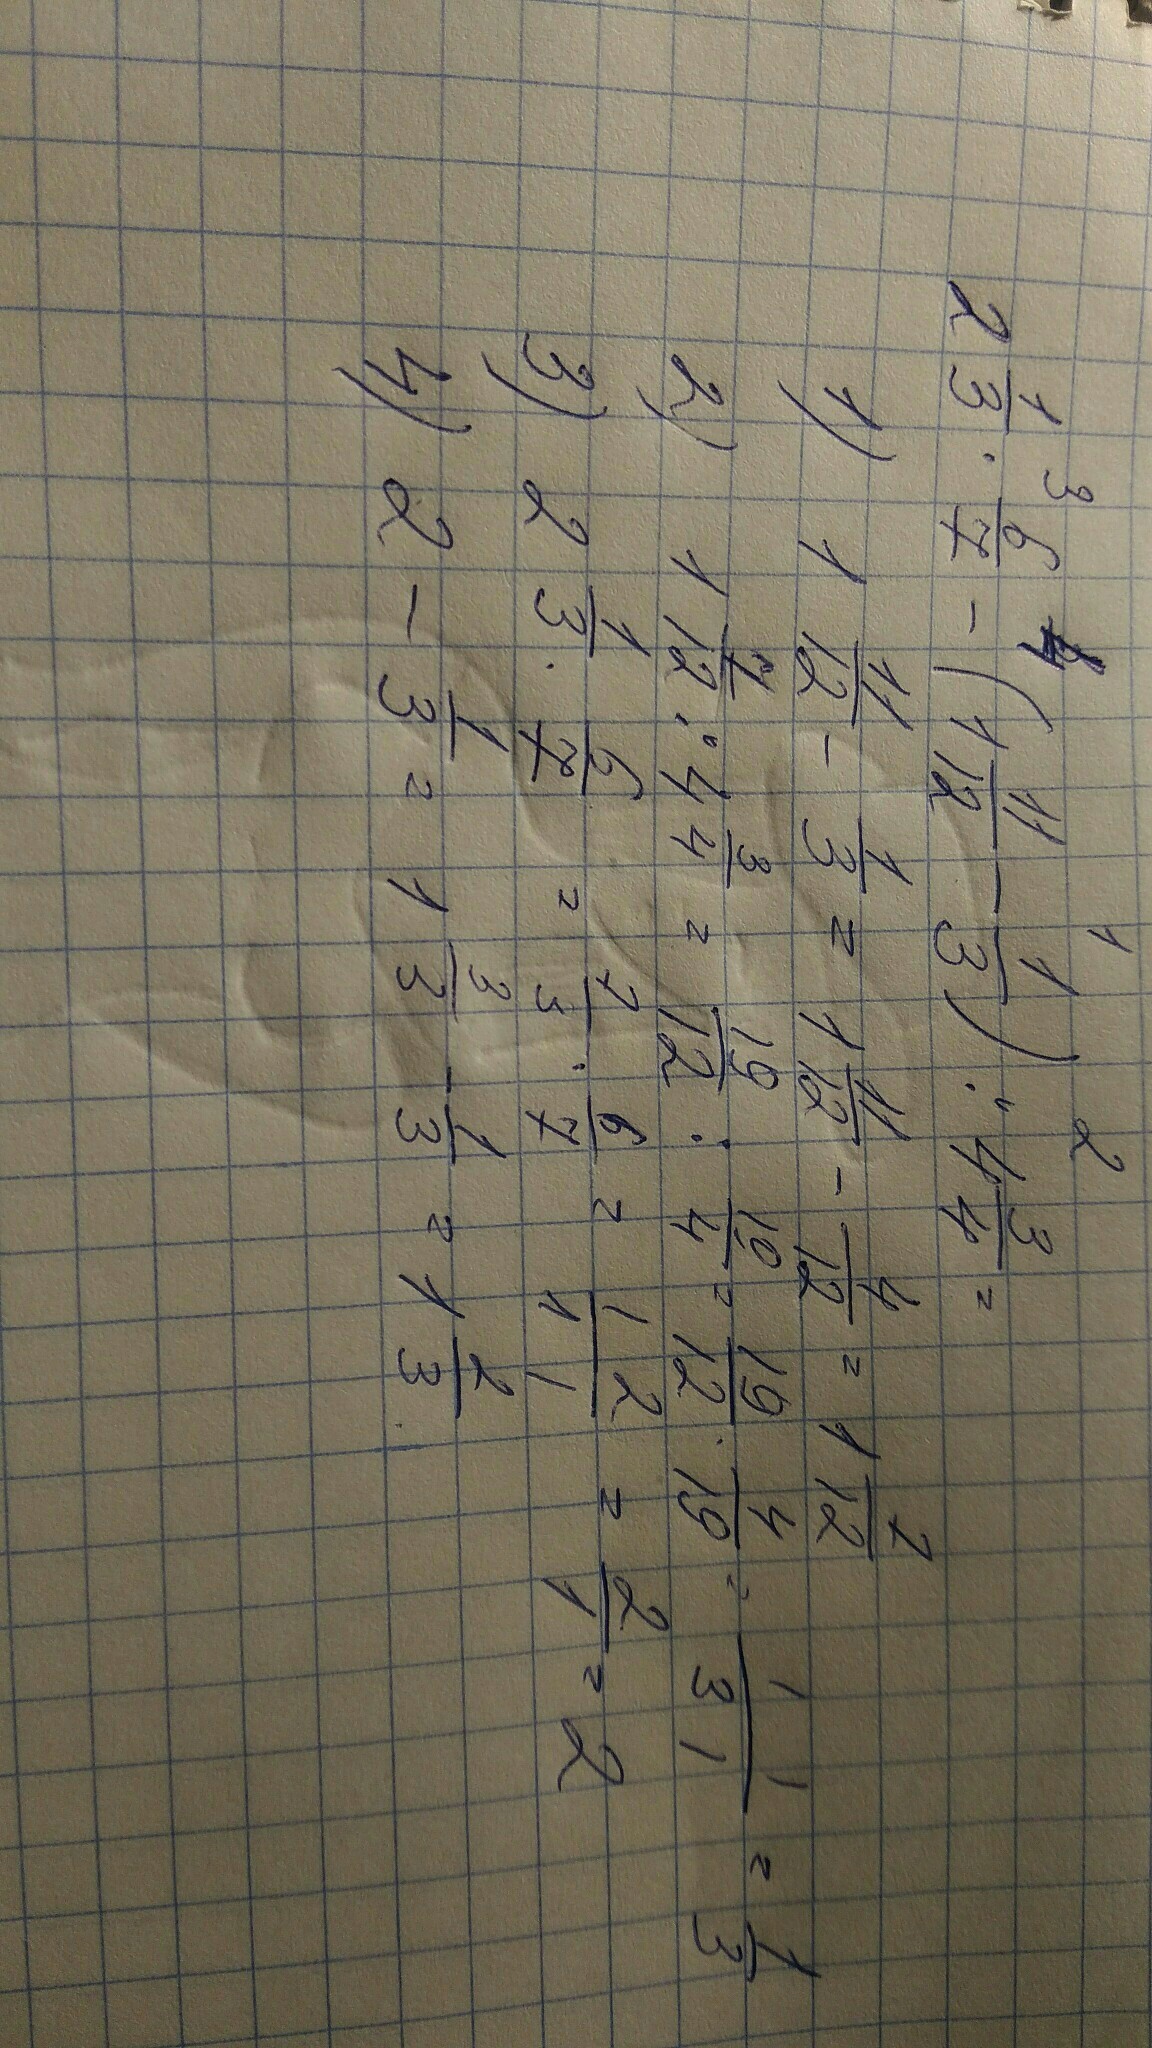 3 1 2
2 1/3 · 6/7 - (1 11/12 - 1/3) : 4 3/4 =
1) 1 11/12 - 1/3 = 1 11/12 - 4/12 = 1 7/12
2) 1 7/12 : 4 3/4 = 19/12 : 19/4 = 19/12 · 4/19 = 1 1/3 1 = 1/3
3) 2 1/3 · 6/7 = 7/3 · 6/7 = 1 2/1 1 = 2/1 = 2
4) 2 - 1/3 = 1 3/3 - 1/3 = 1 2/3.